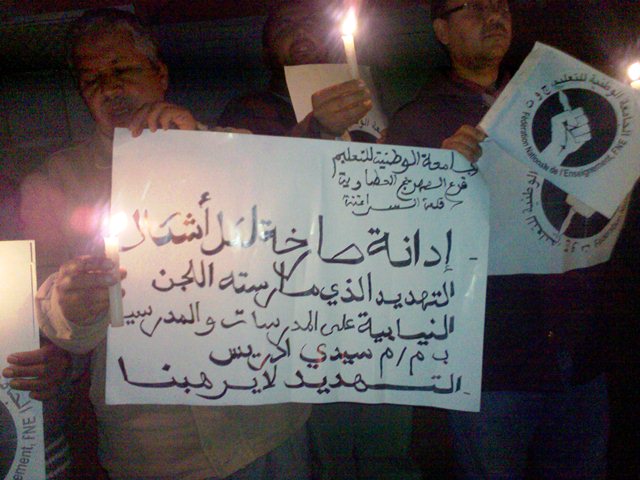 الجامعة الوطنية للتعليم
فرع الصهريج العطاوية
قلعة السراغنة
إدانة صارخة لكل أشكال
التهديد الذي مارسته اللجن
النيابية على المدرسات والمدرسي
ب م/م سيدي ادريس
التهديد لا يرهبنا
الجامعة الوطنية للتعليم
Fédération Nationale de l'Enseignement, FNE
الوطنية للتعليم
Enseignement, FNE